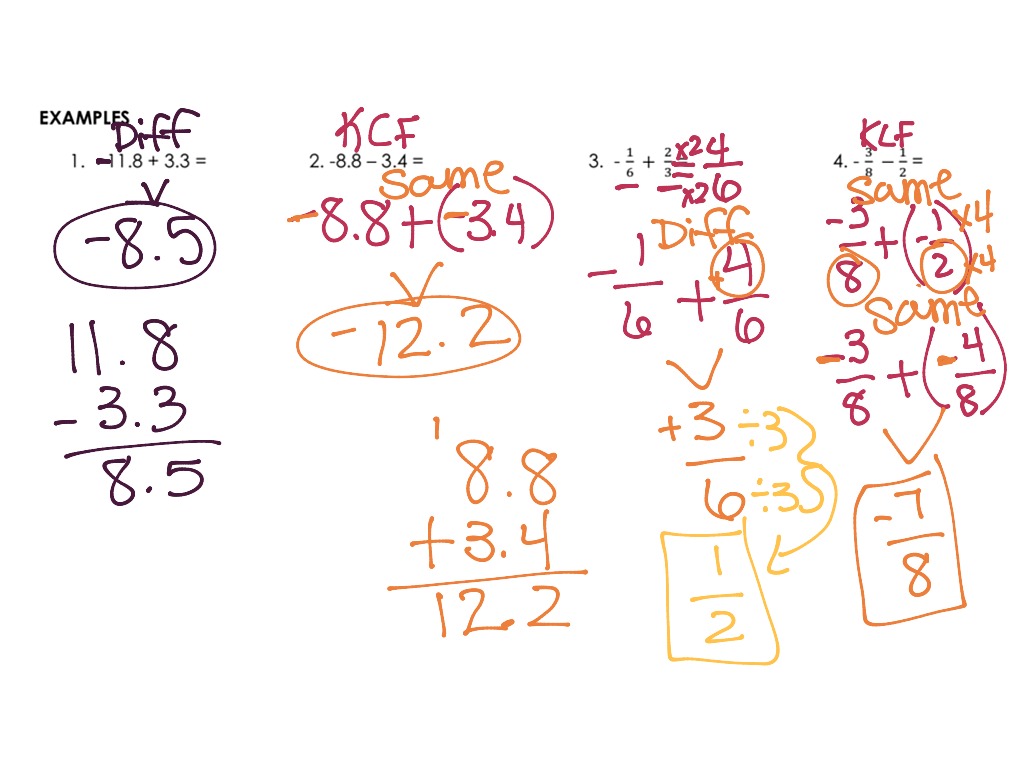 EXAMPLES
Diff
1. -11.8 + 3.3 =
-8.5
11.8
- 3.3
8.5
KCF
2. -8.8 – 3.4 =
Same
-8.8 + (-3.4)
-12.2
1
8.8
+ 3.4
12.2
3. - 1/6 + 2/3 = x2 4
x2 6
Diff
- 1/6 + +4/6
+ 3/6 ÷3
÷3
1/2
KCF
4. - 3/8 – 1/2 =
Same
-3/8 + (-1/2) x4
x4
Same
-3/8 + (-4/8)
-7/8